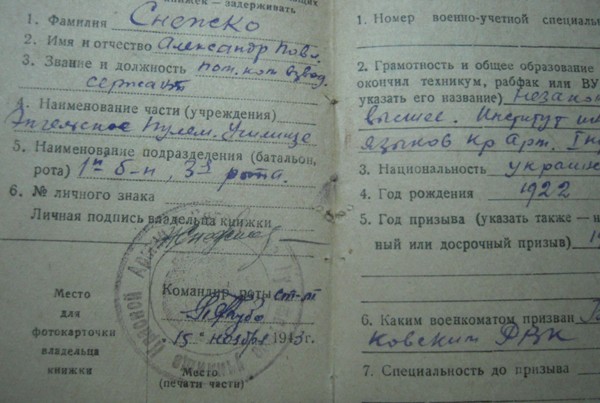 книжек — задерживать
1. Фамилия Снежко
2. Имя и отчество Александр Павл.
3. Звание и должность пом. ком. взвод.
сержант
4. Наименование части (учреждения)
Энгельсское Пулем. Училище
5. Наименование подразделения (батальон,
рота) 1й б-н, 3я рота.
6. № личного знака
Личная подпись владельца книжки
Командир роты ст. л-т
15 ноября 1943 г.
Место
(печати части)
Место
для
фотокарточки
владельца
книжки
1. Номер военно-учетной специаль
2. Грамотность и общее образование
окончил техникум, рабфак или ВУ
указать его название) незакон
высшее. Институт ин
языков Кр. Арм.
3. Национальность украин
4. Год рождения 1922
5. Год призыва (указать также — н
ный или досрочный призыв)
6. Каким военкоматом призван
ковским РВК
7. Специальность до призыва